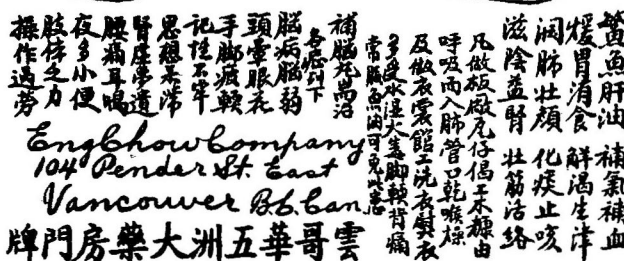 鰵魚肝油 補氣補血
煖胃消食 解渴生津
潤肺壯顏 化痰止咳
滋陰益腎 壯筋活絡
凡做板廠瓦仔偈工木糠由
呼吸而入肺管口乾喉燥
及做衣裳館工洗衣熨衣
多受水湿火毒脚軟背痛
常服魚油可免此患
補腦丸耑治
各症列下
腦病腦弱
頭暈眼花
手脚疲軟
記性不牢
思想呆滯
腎虛夢遺
腰痛耳鳴
夜多小便
肢体乏力
操作過勞
Eng Chow Company
104 Pender St. East
Vancouver B.C. Can.
雲哥華五洲大藥房門牌